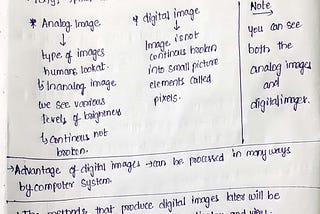 * Analog Image
↓
type of images
humans, lookat.
↳ Inanalog image
we see various
levels of brightness
↳ continous not
broken.
* digital image
↓
Image is not
continous broken
into small picture
elements called
pixels.
Note
you can see
both the
analog images
and
digital images.
→ Advantage of digital images → can be processed in many ways
by computer system.
methods that produce digital images later will be